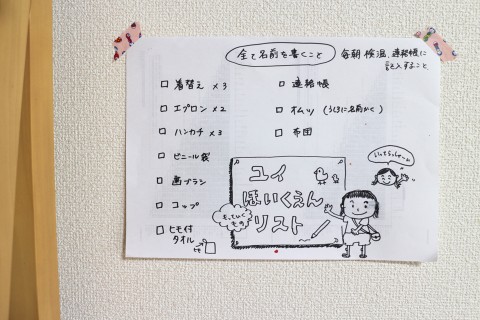 全て名前を書くこと
毎朝 検温、連絡帳に
記入すること
□ 着替え ×3
□ エプロン ×2
□ ハンカチ ×3
□ ビニール袋
□ 歯ブラシ
□ コップ
□ ヒモ付
タオル
ヒモ
□ 連絡帳
□ オムツ (うしろに名前かく)
□ 布団
ユイ
ほいくえん
リスト
もっていく
もの
いってらっしゃーい